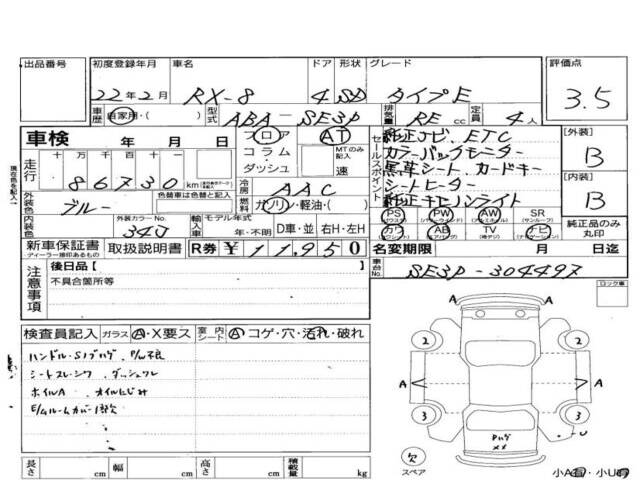 出品番号 初度登録年月 車名 ドア 形状 グレード 評価点
22年2月 RX-8 4 SD タイプE 3.5
車歴 自家用・( ) 型式 ABA-SE3P 排気量 RE cc 定員 4人
車検 年 月 日
フロア コラム・ダッシュ
AT MTのみ記入 速
セールスポイント
純正ナビ、ETC
カラーバックモニター
黒革シート、カードキー
シートヒーター
純正キセノンライト
[外装] B
[内装] B
現在色を記入
走行 十万 万 千 百 十 一
86730 km
冷房 AAC
外装色 ブルー 色替車は色替と記入
燃料 ガソリン・軽油・( )
内装色 外装カラーNo. 34J
輸入車 モデル年式 年・不明 D車・並 右H・左H
PS (パワステ) PW (パワーウィンドウ) AW (アルミホイール) SR (サンルーフ)
カワ AB (エアバッグ) TV ナビ (ナビゲーション)
純正品のみ丸印
新車保証書 ディーラー捺印あるもの 取扱説明書 R券 ¥11,950
名変期限 月 日迄
注意事項
後日品[ ]
不具合箇所等
車台No. SE3P-304497
ロック車
検査員記入 ガラス A・X要ス 室内シート A コゲ・穴・汚れ・破れ
ハンドル・Sノブハゲ、P/W不良
シートスレ・シワ ダッシュワレ
ホイルA 、オイルにじみ
E/gルームカバー1部欠
A
2 2
A A
3 3
A U
Pハゲ
××
欠
スペア
長さ cm 幅 cm 高さ cm 積載量 kg
小A有・小U有